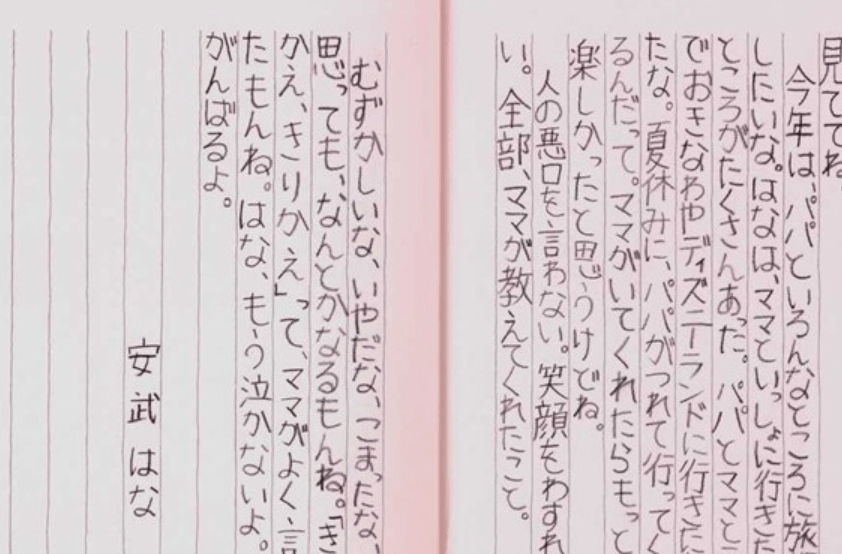 見ててね
今年は、パパといろんなところに旅
したいな。はなは、ママといっしょに行きた
ところがたくさんあった。パパとママとこ
でおきなわやディズニーランドに行きたか
たな。夏休みに、パパがつれて行ってく
るんだって。ママがいてくれたらもっと
楽しかったと思うけどね。
人の悪口を言わない。笑顔をわすれ
い。全部、ママが教えてくれたこと。
むずかしいな、いやだな、こまったな、
思っても、なんとかなるもんね。「き
かえ、きりかえ」って、ママがよく言
たもんね。はな、もう泣かないよ。
がんばるよ。
安武はな